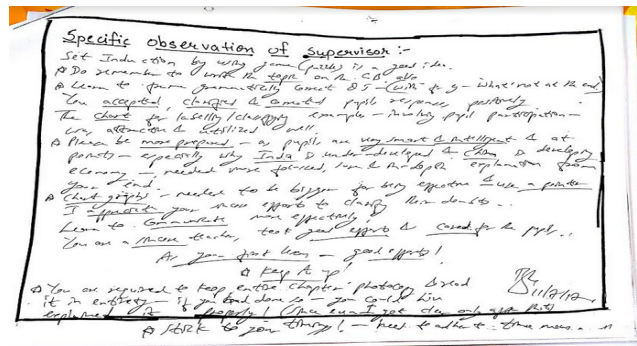 Specific observation of supervisor :-
Set Induction by using game (puzzle) is a good idea.
Do remember to write the topic on the CB also
Learn to frame grammatically correct Qs - (with for g - what/not at the end)
You accepted, clarified & corrected pupils responses positively
The chart for labelling/classifying examples - involving pupil participation -
was attractive & utilized well.
Please be more prepared - as pupils are very smart & intelligent & at
points - especially why India is under-developed & China is developing
economy - needed more focused, & in-depth explanation from
your end.
Chart graphs - needed to be bigger for being effective & use a pointer
I appreciate your sincere efforts to clarify their doubts..
Learn to communicate more effectively!
You are a sincere teacher, took good efforts & cared for the pupils...
As your first lesson - good efforts!
Keep it up!
You are required to keep entire chapter photocopy & read
it in entirety - if you had done so - you could have
explained it properly!
11/7/17
Stick to your timing! - need to adhere to time